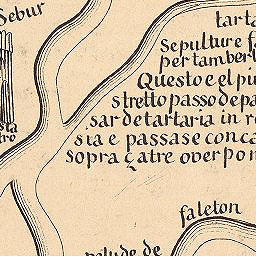 Sebur
tarta
Sepulture f
per tamberl
Questo e el piu
stretto passo de pa
sar de tartaria in r
sia e passase con ca
sopra çatre over pon
sta
tro
faleton
palude de